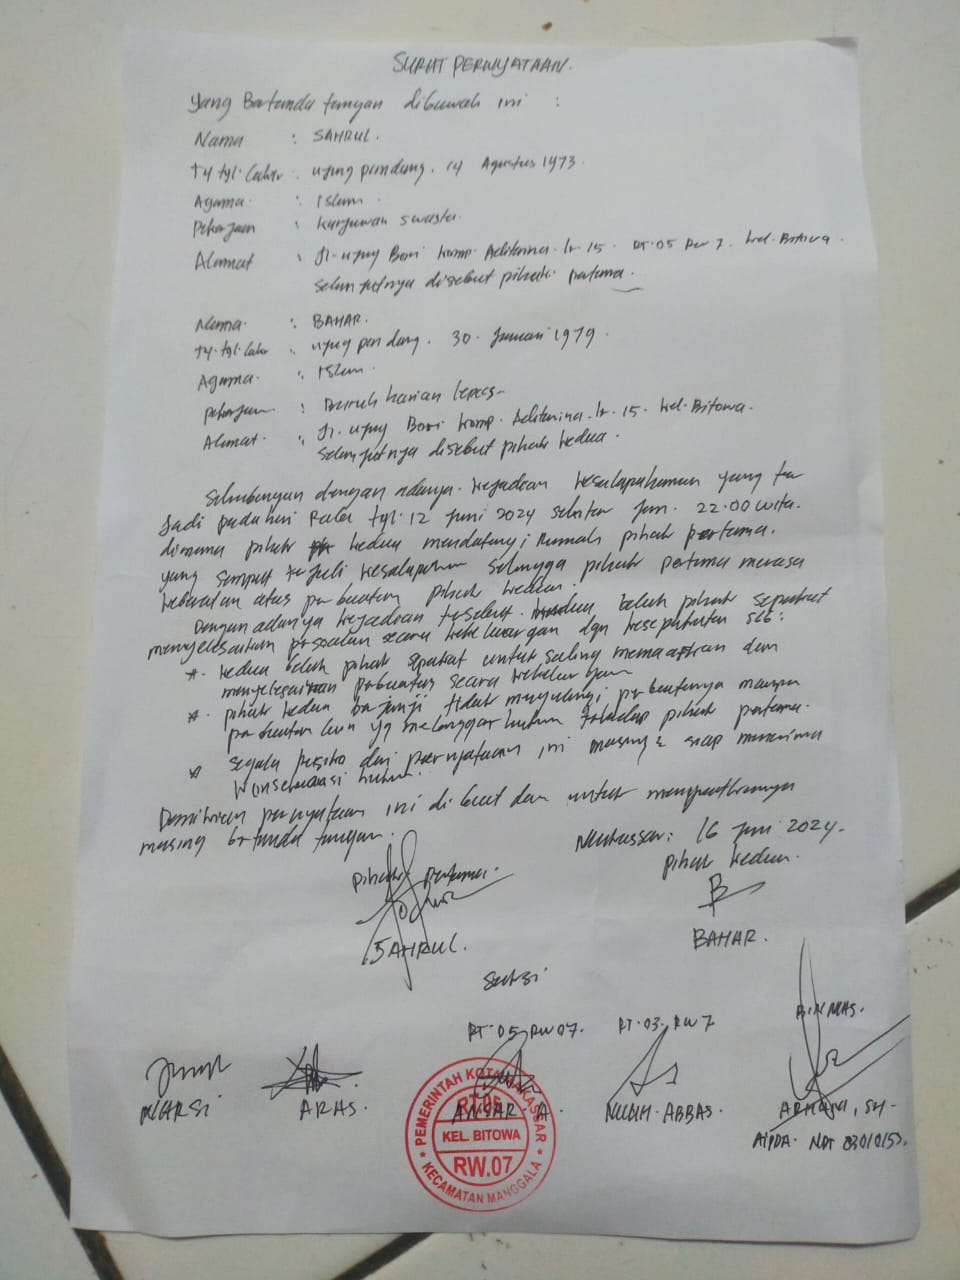 SURAT PERNYATAAN.
yang Bertanda tangan dibawah ini :
Nama : SAHRUL.
TT. tgl. Lahir . ujung pandang . 14 Agustus 1973
Agama . : Islam .
Pekerjaan : karyawan swasta.
Alamat : Jl. ujung Bori komp. Aditarina. lr. 15 . RT. 05 RW 7 . kel. Bitowa .
selanjutnya disebut pihak pertama .
Nama . : BAHAR.
TT. tgl. Lahir . ujung pandang . 30 . Januari 1979 .
Agama . : Islam .
pekerjaan : Buruh harian lepas -
Alamat . : Jl. ujung Bori komp. Aditarina. lr. 15 . kel. Bitowa .
selanjutnya disebut pihak kedua .
Sehubungan dengan adanya . kejadian kesalapahaman yang ter
jadi pada hari Rabu tgl. 12 Juni 2024 sekitar Jam . 22.00 wita.
dimana pihak kedua mendatangi rumah pihak pertama.
yang sempat terjadi kesalapahan sehingga pihak pertama merasa
keberatan atas perbuatan pihak kedua .
Dengan adanya kejadian tersebut . belah pihak sepakat
menyelesaikan persoalan secara kekeluargan dgn kesepakatan sbb :
* . kedua belah pihak sepakat untuk saling memaafkan dan
menyelesaikan perbuatan secara kekeluargaan
* . pihak kedua berjanji tidak mengulangi perbuatannya maupun
perbuatan lain yg melanggar hukum terhadap pihak pertama.
* segala resiko dari pernyataan ini masing2 siap menerima
konsekuasi hukum .
Demikian pernyataan ini di buat dan untuk
masing bertanda tangan .
Makassar : 16 Juni 2024 .
pihak pertama . pihak kedua .
SAHRUL . BAHAR .
Saksi
RT. 05 RW 07 . RT. 03 . RW 7 BINMAS .
NARSI ARAS . ANSAR . A . NUUH . ABBAS . , SH
AIPDA .
PEMERINTAH KOTA MAKASSAR
RT.05
KEL. BITOWA
RW.07
KECAMATAN MANGGALA